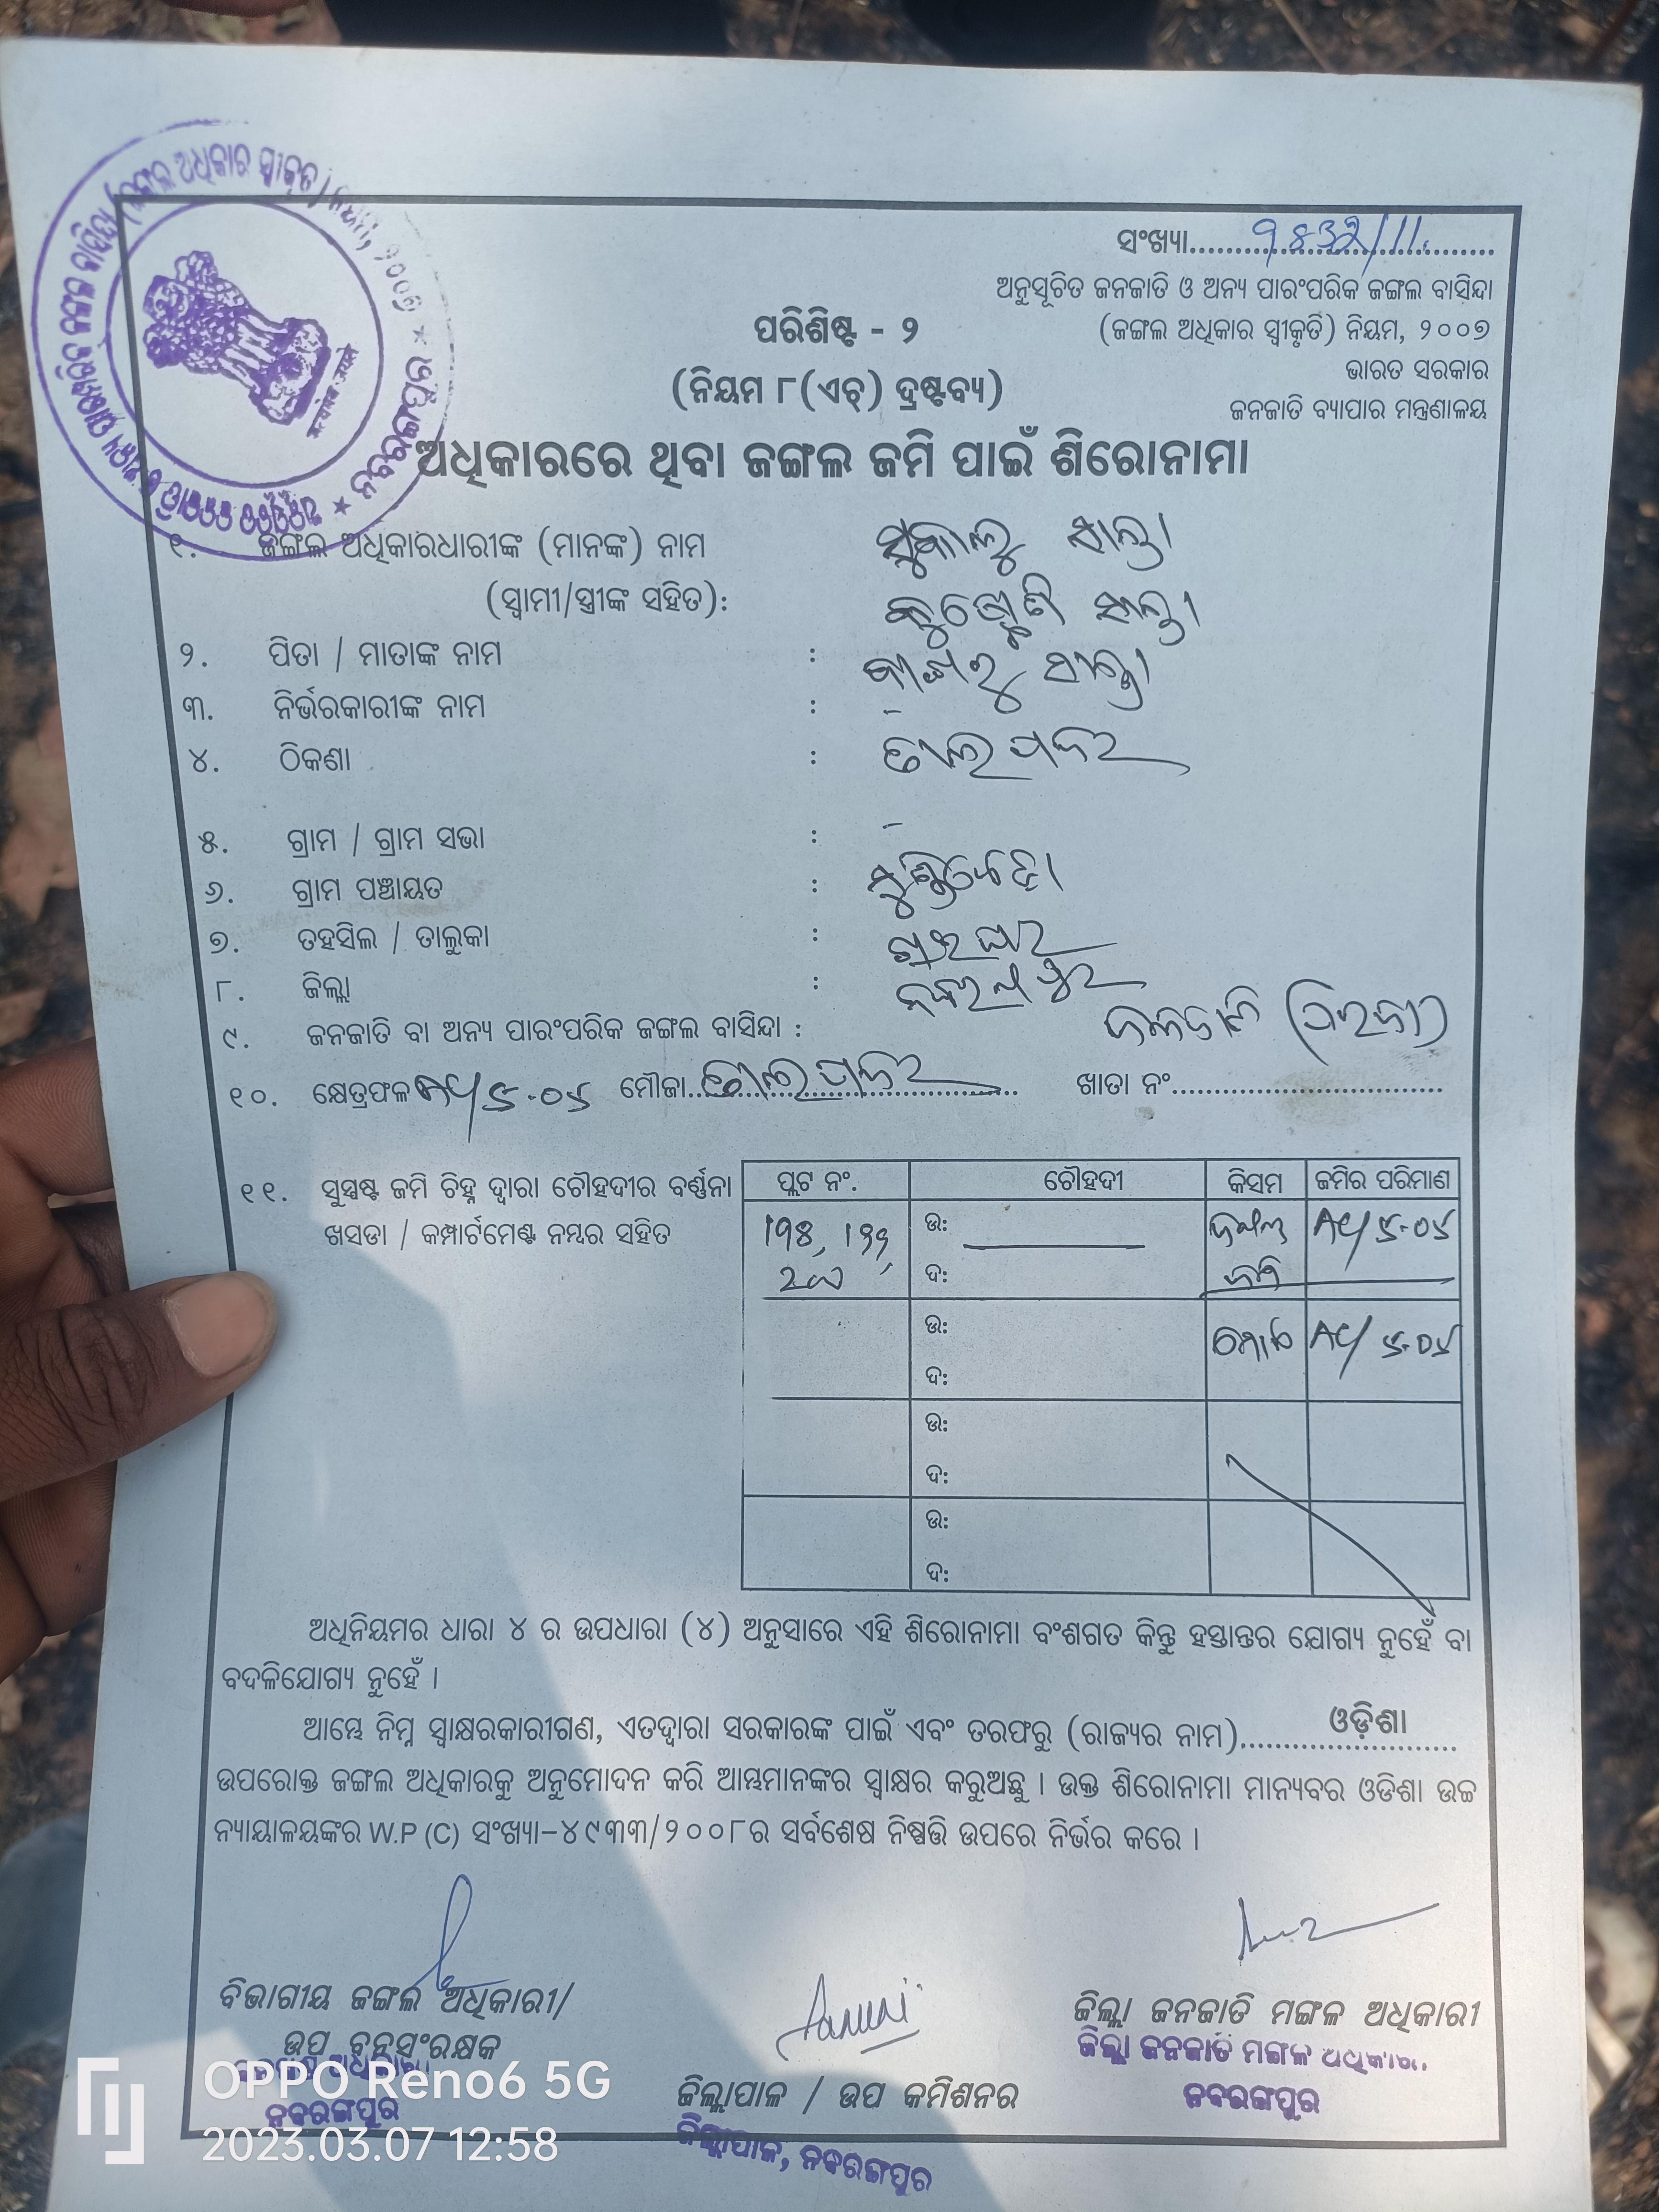 ସଂଖ୍ୟା
ଅନୁସୂଚିତ ଜନଜାତି ଓ ଅନ୍ୟ ପାରଂପରିକ ଜଙ୍ଗଲ ବାସିନ୍ଦା
(ଜଙ୍ଗଲ ଅଧିକାର ସ୍ୱୀକୃତି) ନିୟମ, ୨୦୦୭
ଭାରତ ସରକାର
ଜନଜାତି ବ୍ୟାପାର ମନ୍ତ୍ରଣାଳୟ
ପରିଶିଷ୍ଟ - ୨
(ନିୟମ ୮(ଏଚ୍) ଦ୍ରଷ୍ଟବ୍ୟ)
ଅଧିକାରରେ ଥିବା ଜଙ୍ଗଲ ଜମି ପାଇଁ ଶିରୋନାମା
୧. ଜଙ୍ଗଲ ଅଧିକାରଧାରୀଙ୍କ (ମାନଙ୍କ) ନାମ
(ସ୍ୱାମୀ/ସ୍ତ୍ରୀଙ୍କ ସହିତ):
୨. ପିତା / ମାତାଙ୍କ ନାମ :
୩. ନିର୍ଭରକାରୀଙ୍କ ନାମ : -
୪. ଠିକଣା :
୫. ଗ୍ରାମ / ଗ୍ରାମ ସଭା : -
୬. ଗ୍ରାମ ପଞ୍ଚାୟତ :
୭. ତହସିଲ / ତାଲୁକା :
୮. ଜିଲ୍ଲା : ନବରଙ୍ଗପୁର
୯. ଜନଜାତି ବା ଅନ୍ୟ ପାରଂପରିକ ଜଙ୍ଗଲ ବାସିନ୍ଦା : ଜନଜାତି
୧୦. କ୍ଷେତ୍ରଫଳ ମୌଜା ଖାତା ନଂ
୧୧. ସୁସ୍ପଷ୍ଟ ଜମି ଚିହ୍ନ ଦ୍ୱାରା ଚୌହଦୀର ବର୍ଣ୍ଣନା
ଖସଡା / କମ୍ପାର୍ଟମେଣ୍ଟ ନମ୍ବର ସହିତ
ପ୍ଲଟ ନଂ. ଚୌହଦୀ କିସମ ଜମିର ପରିମାଣ
ଉ: ଜଙ୍ଗଲ
ଦ: ଜମି
ଉ: ମୋଟ
ଦ:
ଉ:
ଦ:
ଉ:
ଦ:
ଅଧିନିୟମର ଧାରା ୪ ର ଉପଧାରା (୪) ଅନୁସାରେ ଏହି ଶିରୋନାମା ବଂଶଗତ କିନ୍ତୁ ହସ୍ତାନ୍ତର ଯୋଗ୍ୟ ନୁହେଁ ବା
ବଦଳିଯୋଗ୍ୟ ନୁହେଁ ।
ଆମ୍ଭେ ନିମ୍ନ ସ୍ୱାକ୍ଷରକାରୀଗଣ, ଏତଦ୍ୱାରା ସରକାରଙ୍କ ପାଇଁ ଏବଂ ତରଫରୁ (ରାଜ୍ୟର ନାମ) ଓଡ଼ିଶା
ଉପରୋକ୍ତ ଜଙ୍ଗଲ ଅଧିକାରକୁ ଅନୁମୋଦନ କରି ଆମ୍ଭମାନଙ୍କର ସ୍ୱାକ୍ଷର କରୁଅଛୁ । ଉକ୍ତ ଶିରୋନାମା ମାନ୍ୟବର ଓଡିଶା ଉଚ୍ଚ
ନ୍ୟାୟାଳୟଙ୍କର W.P (C) ସଂଖ୍ୟା-୪୯୩୩/୨୦୦୮ର ସର୍ବଶେଷ ନିଷ୍ପତ୍ତି ଉପରେ ନିର୍ଭର କରେ ।
ବିଭାଗୀୟ ଜଙ୍ଗଲ ଅଧିକାରୀ/
ଉପ ବନସଂରକ୍ଷକ
ନବରଙ୍ଗପୁର
ଜିଲ୍ଲାପାଳ / ଉପ କମିଶନର
ଜିଲ୍ଲାପାଳ, ନବରଙ୍ଗପୁର
ଜିଲ୍ଲା ଜନଜାତି ମଙ୍ଗଳ ଅଧିକାରୀ
ଜିଲ୍ଲା ଜନଜାତି ମଙ୍ଗଳ ଅଧିକାରୀ
ନବରଙ୍ଗପୁର
OPPO Reno6 5G
2023.03.07 12:58